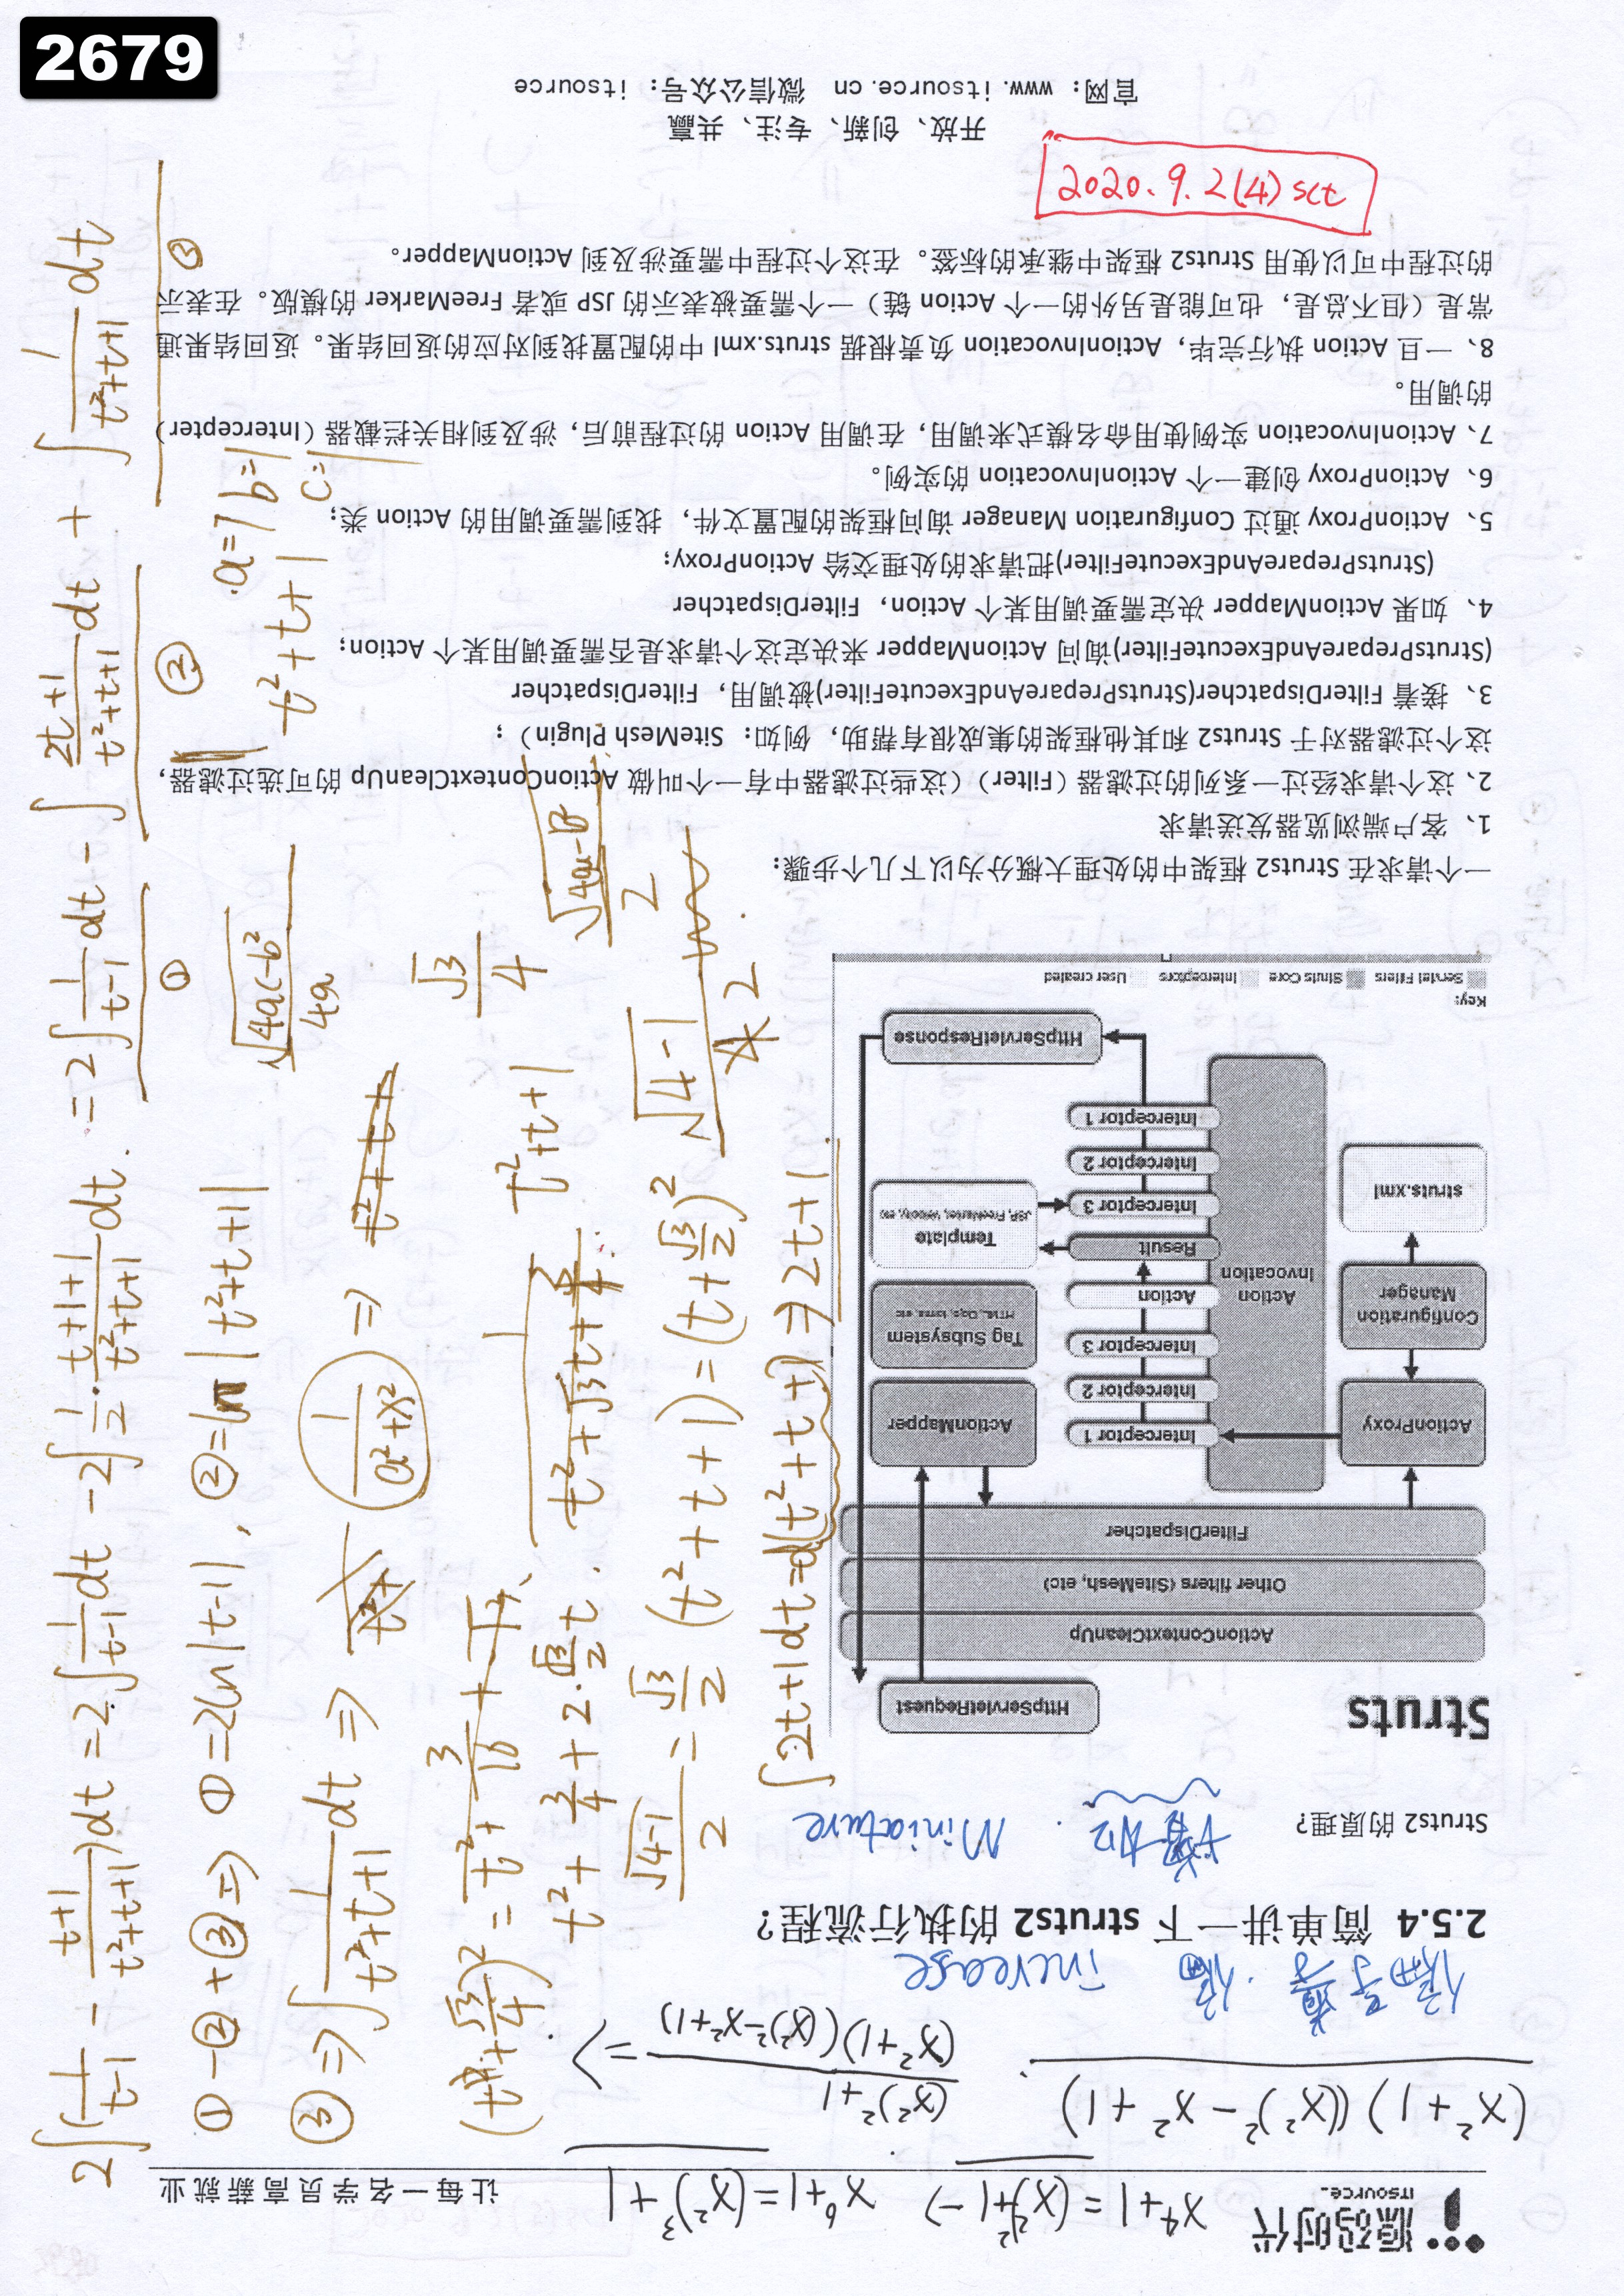 2679
源码时代
ITSOURCE
让每一名学员高薪就业
x⁴+1=(x²)²+1→
x⁶+1=(x²)³+1
(x²+1)((x²)²-x²+1)
(x²)²+1
(x²+1)((x²)²-x²+1)
=>
increase
2.5.4 简单讲一下 struts2 的执行流程?
Struts2 的原理?
Miniature
Struts
HttpServletRequest
ActionContextCleanUp
Other filters (SiteMesh, etc)
FilterDispatcher
ActionProxy
ActionMapper
Configuration Manager
struts.xml
Action Invocation
Interceptor 1
Interceptor 2
Interceptor 3
Action
Result
Interceptor 3
Interceptor 2
Interceptor 1
Tag Subsystem
HTML, Obps, forms, etc
Template
JSP, FreeMarker, Velocity, etc
HttpServletResponse
Key:
Servlet Filters
Struts Core
Interceptors
User created
一个请求在 Struts2 框架中的处理大概分为以下几个步骤:
1、客户端浏览器发送请求
2、这个请求经过一系列的过滤器(Filter)(这些过滤器中有一个叫做 ActionContextCleanUp 的可选过滤器,
这个过滤器对于 Struts2 和其他框架的集成很有帮助,例如:SiteMesh Plugin);
3、接着 FilterDispatcher(StrutsPrepareAndExecuteFilter)被调用,FilterDispatcher
(StrutsPrepareAndExecuteFilter)询问 ActionMapper 来决定这个请求是否需要调用某个 Action;
4、如果 ActionMapper 决定需要调用某个 Action,FilterDispatcher
(StrutsPrepareAndExecuteFilter)把请求的处理交给 ActionProxy;
5、ActionProxy 通过 Configuration Manager 询问框架的配置文件,找到需要调用的 Action 类;
6、ActionProxy 创建一个 ActionInvocation 的实例。
7、ActionInvocation 实例使用命名模式来调用,在调用 Action 的过程前后,涉及到相关拦截器(Intercepter)
的调用。
8、一旦 Action 执行完毕,ActionInvocation 负责根据 struts.xml 中的配置找到对应的返回结果。返回结果通
常是(但不总是,也可能是另外的一个 Action 链)一个需要被表示的 JSP 或者 FreeMarker 的模版。在表示
的过程中可以使用 Struts2 框架中继承的标签。在这个过程中需要涉及到 ActionMapper。
2020.9.2(4)sct
开放、创新、专注、共赢
官网:www.itsource.cn 微信公众号:itsource
2∫(1/(t-1) - (t+1)/(t²+t+1))dt = 2∫1/(t-1)dt - 2∫1/2·(2t+1+1)/(t²+t+1)dt = 2∫1/(t-1)dt - ∫(2t+1)/(t²+t+1)dt + ∫1/(t²+t+1)dt
① ② ③
①-②+③ ⇒ ①=2ln|t-1|, ②=ln|t²+t+1|
√(4ac-b²)/4a
t²+t+1
a=1 b=1
c=1
③ ⇒ ∫1/(t²+t+1)dt ⇒
1/(a²+x²) ⇒
(t+√3/4)² = t²+3/16+
√3/4
t²+3/4+2·√3/2t.
1/(t²+√3t+
t²+t+1
√(4-1)/2 = √3/2
(t²+t+1)=(t+√3/2)²
√(4-1)/2
∫2t+1dt=d(t²+t+1)⇒2t+1